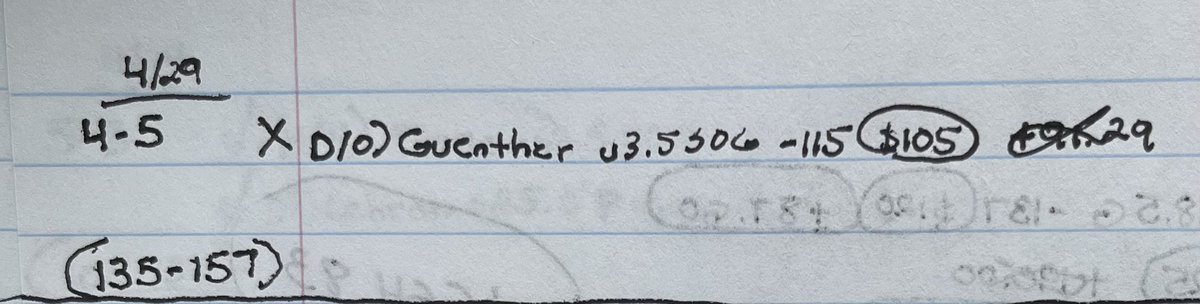 4/29
4-5 X D10) Guenther u3.5 SOG -115 $105
(135-157)